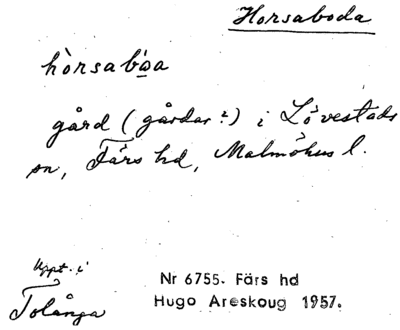 Horsaboda
hòrsabὼa
gård (gårdar?) i Lövestads
sn, Färs hd, Malmöhus l.
Uppt. i
Tolånga
Nr 6755. Färs hd
Hugo Areskoug 1957.